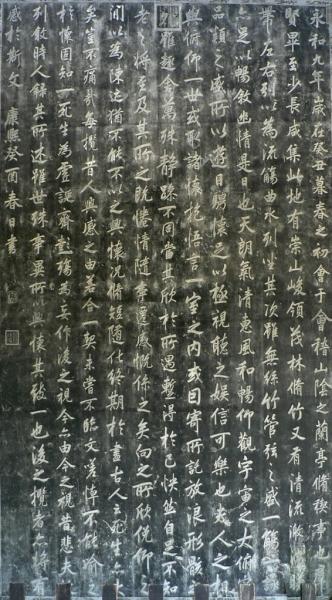 永和九年歲在癸丑暮春之初會于會稽山陰之蘭亭脩禊事也羣
賢畢至少長咸集此地有崇山峻領茂林脩竹又有清流激湍映
帶左右引以為流觴曲水列坐其次雖無絲竹管弦之盛一觴一詠
亦足以暢敘幽情是日也天朗氣清惠風和暢仰觀宇宙之大俯察
品類之盛所以遊目騁懷足以極視聽之娛信可樂也夫人之相
與俯仰一世或取諸懷抱悟言一室之內或因寄所託放浪形骸之外
雖趣舍萬殊靜躁不同當其欣於所遇暫得於己快然自足不知
老之將至及其所之既惓情隨事遷感慨係之矣向之所欣俛仰之
間以為陳迹猶不能不以之興懷況脩短隨化終期於盡古人云死生亦大
矣豈不痛哉每攬昔人興感之由若合一契未嘗不臨文嗟悼不能喻之
於懷固知一死生為虛誕齊彭殤為妄作後之視今亦由今之視昔悲夫故
列敘時人錄其所述雖世殊事異所以興懷其致一也後之攬者亦將有
感於斯文 康熙癸酉春日書